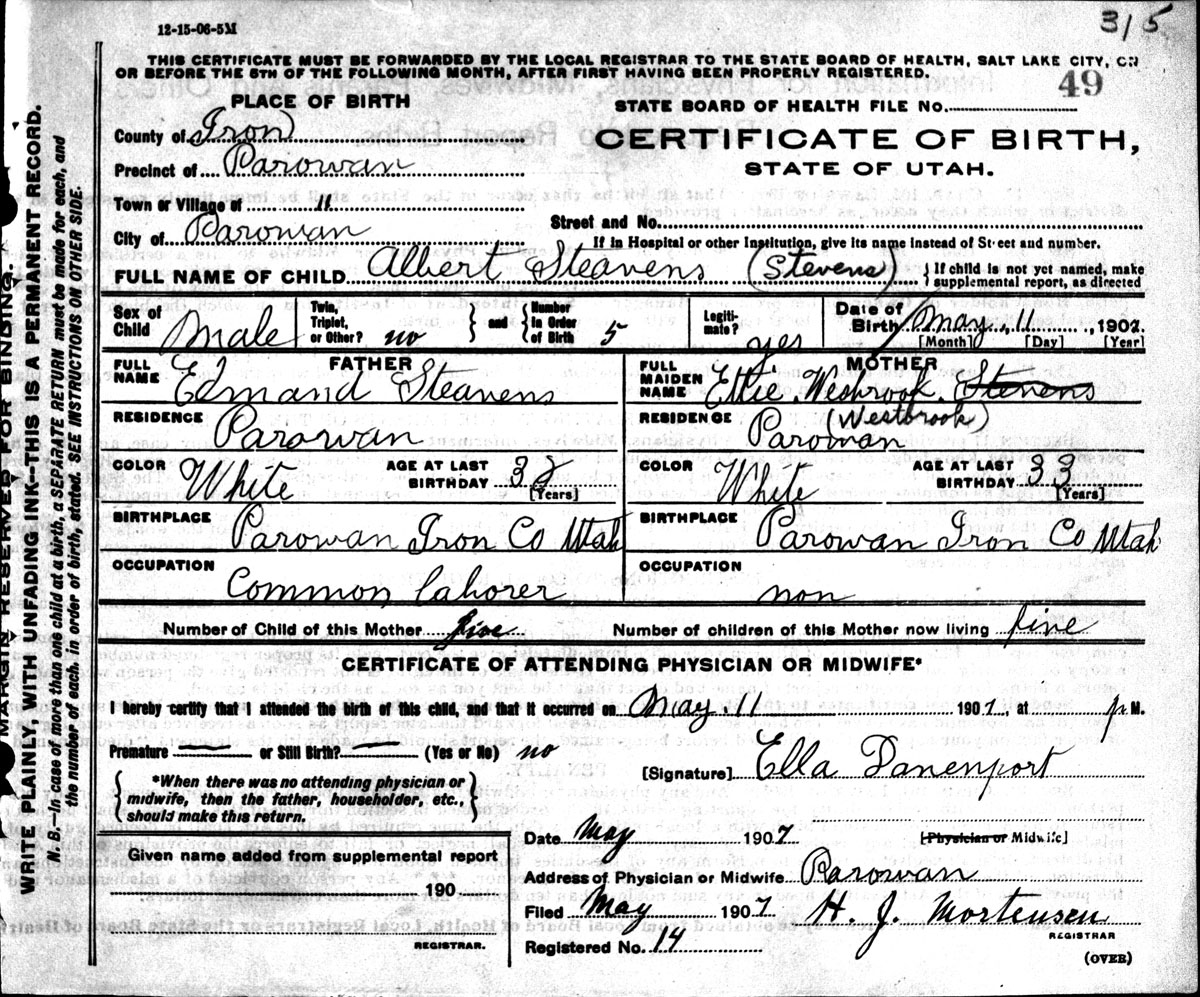 12-15-06-5M
315
THIS CERTIFICATE MUST BE FORWARDED BY THE LOCAL REGISTRAR TO THE STATE BOARD OF HEALTH, SALT LAKE CITY, ON
OR BEFORE THE 5TH OF THE FOLLOWING MONTH, AFTER FIRST HAVING BEEN PROPERLY REGISTERED.
49
PLACE OF BIRTH
STATE BOARD OF HEALTH FILE No.
County of Iron
CERTIFICATE OF BIRTH,
Precinct of Parowan
STATE OF UTAH.
Town or Village of "
Street and No.
City of Parowan
If in Hospital or other Institution, give its name instead of Street and number.
FULL NAME OF CHILD Albert Steavens (Stevens) } If child is not yet named, make
supplemental report, as directed
Sex of Child Male Twin, Triplet, or Other? no } and { Number in Order of Birth 5 Legiti-mate? yes Date of Birth May 11, 1907.
[Month] [Day] [Year]
FATHER MOTHER
FULL NAME Edmand Steavens FULL MAIDEN NAME Ettie Wesbrook Stevens
(Westbrook)
RESIDENCE Parowan RESIDENCE Parowan
COLOR White AGE AT LAST BIRTHDAY 32 [Years] COLOR White AGE AT LAST BIRTHDAY 33 [Years]
BIRTHPLACE Parowan Iron Co Utah BIRTHPLACE Parowan Iron Co Utah
OCCUPATION Common laborer OCCUPATION non
Number of Child of this Mother five Number of children of this Mother now living five
CERTIFICATE OF ATTENDING PHYSICIAN OR MIDWIFE*
I hereby certify that I attended the birth of this child, and that it occurred on May. 11 1907, at p M.
Premature — or Still Birth? — (Yes or No) no
[Signature] Ella Danenport
*When there was no attending physician or
midwife, then the father, householder, etc.,
should make this return.
Date May 1907 [Physician or Midwife]
Given name added from supplemental report
Address of Physician or Midwife Parowan
190
Filed May 1907 H. J. Mortensen
REGISTRAR
REGISTRAR.
Registered No. 14
(OVER)
MARGIN RESERVED FOR BINDING.
WRITE PLAINY, WITH UNFADING INK—THIS IS A PERMANENT RECORD.
N. B.—In case of more than one child at a birth, a SEPARATE RETURN must be made for each, and
the number of each, in order of birth, stated. SEE INSTRUCTIONS ON OTHER SIDE.